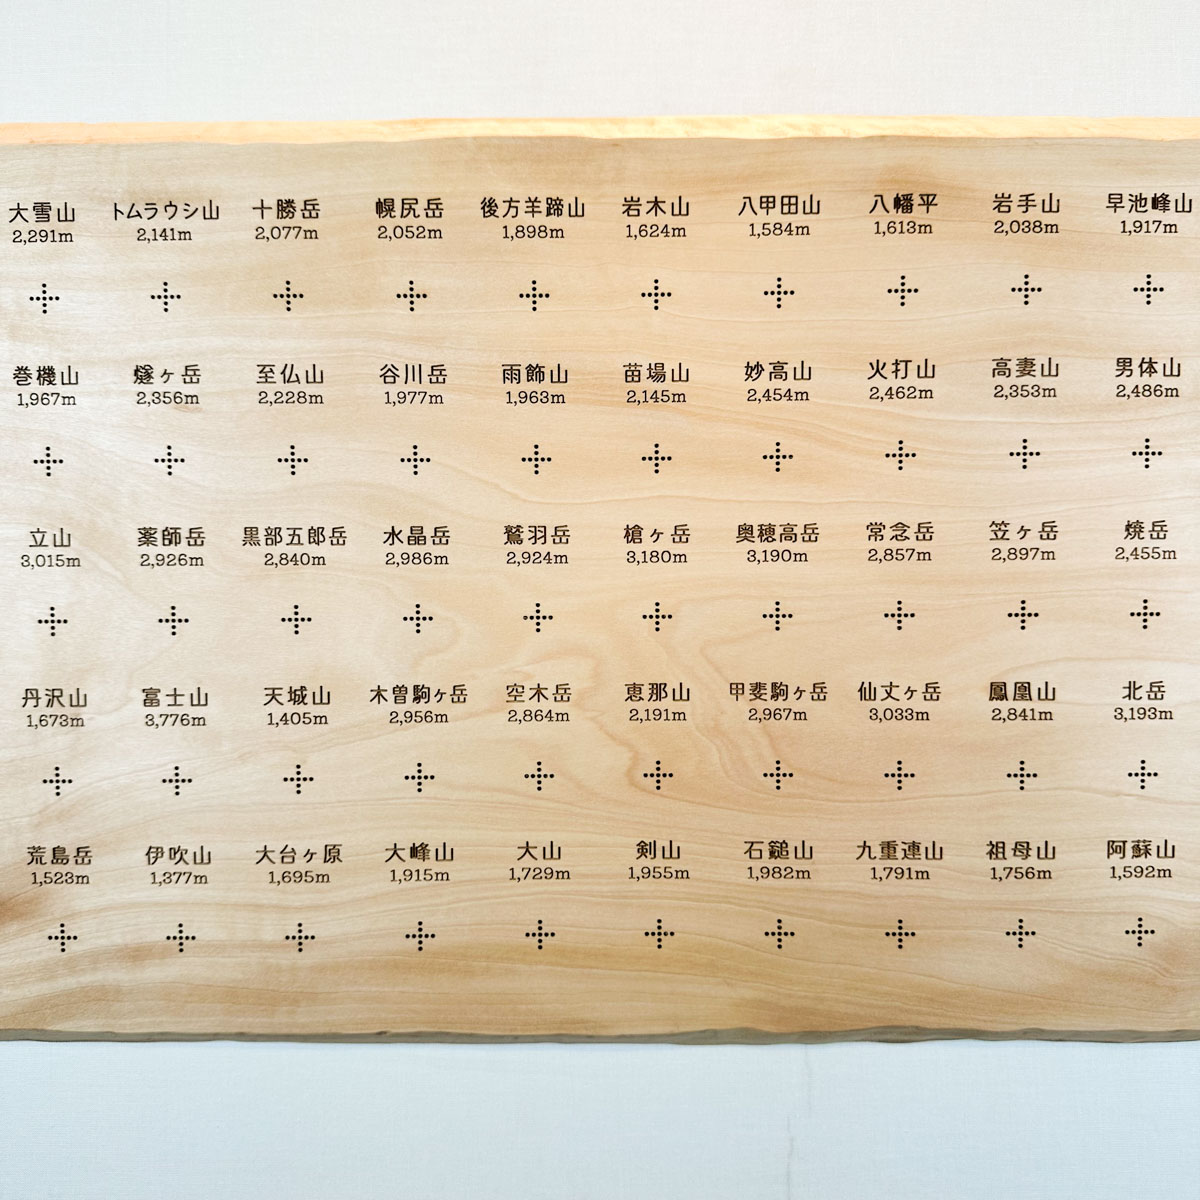 大雪山 トムラウシ山 十勝岳 幌尻岳 後方羊蹄山 岩木山 八甲田山 八幡平 岩手山 早池峰山
2,291m 2,141m 2,077m 2,052m 1,898m 1,624m 1,584m 1,613m 2,038m 1,917m
巻機山 燧ヶ岳 至仏山 谷川岳 雨飾山 苗場山 妙高山 火打山 高妻山 男体山
1,967m 2,356m 2,228m 1,977m 1,963m 2,145m 2,454m 2,462m 2,353m 2,486m
立山 薬師岳 黒部五郎岳 水晶岳 鷲羽岳 槍ヶ岳 奥穂高岳 常念岳 笠ヶ岳 焼岳
3,015m 2,926m 2,840m 2,986m 2,924m 3,180m 3,190m 2,857m 2,897m 2,455m
丹沢山 富士山 天城山 木曽駒ヶ岳 空木岳 恵那山 甲斐駒ヶ岳 仙丈ヶ岳 鳳凰山 北岳
1,673m 3,776m 1,405m 2,956m 2,864m 2,191m 2,967m 3,033m 2,841m 3,193m
荒島岳 伊吹山 大台ヶ原 大峰山 大山 剣山 石鎚山 九重連山 祖母山 阿蘇山
1,523m 1,377m 1,695m 1,915m 1,729m 1,955m 1,982m 1,791m 1,756m 1,592m